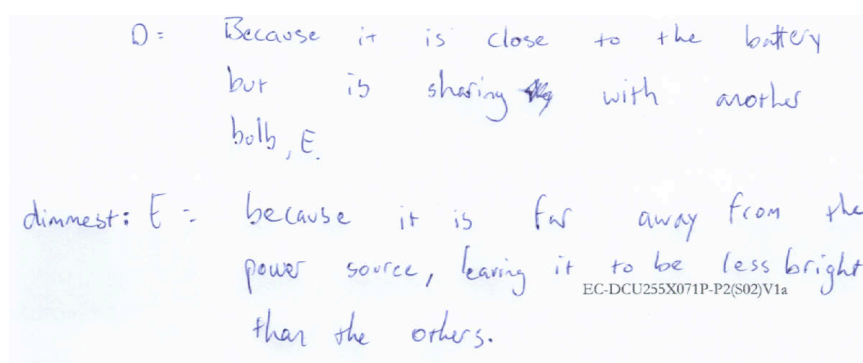 D = Because it is close to the battery
but is sharing with another
bulb, E.
dimmest: E = because it is far away from the
power source, leaving it to be less bright
EC-DCU255X071P-P2(S02)V1a
than the others.